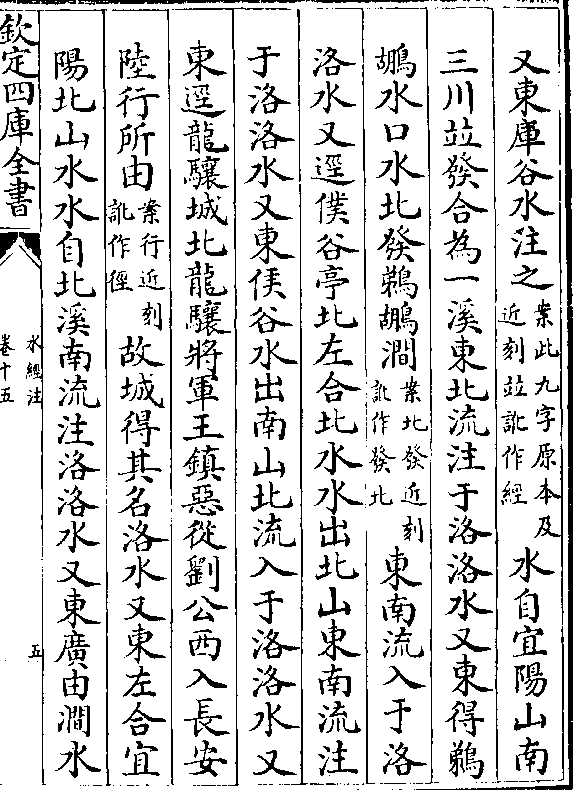 又東庫谷水注之案此九字原本及近刻竝訛作經水自宜陽山南
三川竝發合為一溪東北流注于洛洛水又東得鵜
鶘水口水北發鵜鶘澗案北發近刻訛作發北東南流入于洛
洛水又逕僕谷亭北左合北水水出北山東南流注
于洛洛水又東侯谷水出南山北流入于洛洛水又
東逕龍驤城北龍驤將軍王鎮惡從劉公西入長安
陸行所由案行近刻訛作徑故城得其名洛水又東左合宜
陽北山水水自北溪南流注洛洛水又東廣由澗水
欽定四庫全書
水經注
卷十五
五